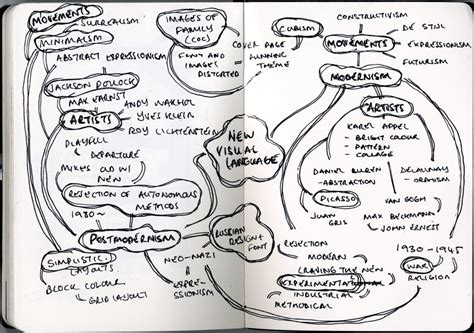 MOVEMENTS
SURREALISM
MINIMALISM
ABSTRACT EXPRESSIONISM
JACKSON POLLOCK
MAX ERNST
ARTISTS
ANDY WARHOL
YVES KLEIN
ROY LICHTENSTEIN
PLAYFUL
DEPARTURE
MIXES OLD W/
NEW
REJECTION OF AUTONOMOUS
METHODS
1930~
POSTMODERNISM
SIMPLISTIC
LAYOUTS
BLOCK COLOUR
GRID LAYOUT
NEO-NAZI
EXPRE-
SSIONISM
IMAGES OF
FAMILY
(COC)
FONT AND
IMAGES
DISTORTED
NEW
VISUAL
LANGUAGE
RUSSIAN
DESIGN +
FONT
CUBISM
COVER PAGE
RUNNING
THEME
CONSTRUCTIVISM
DE STIJL
MOVEMENTS
EXPRESSIONISM
FUTURISM
MODERNISM
ARTISTS
KAREL APPEL
- BRIGHT COLOUR
- PATTERN
- COLLAGE
DANIEL BUREN
- ABSTRACTION
DELAUNAY
- ORPHISM
PICASSO
JUAN
GRIS
VAN GOGH
MAX BECKMANN
JOHN ERNST
REJECTION
MODERN
CRAVING THE NEW
EXPERIMENTATION
INDUSTRIAL
METHODICAL
1930 - 1945
WAR
RELIGION